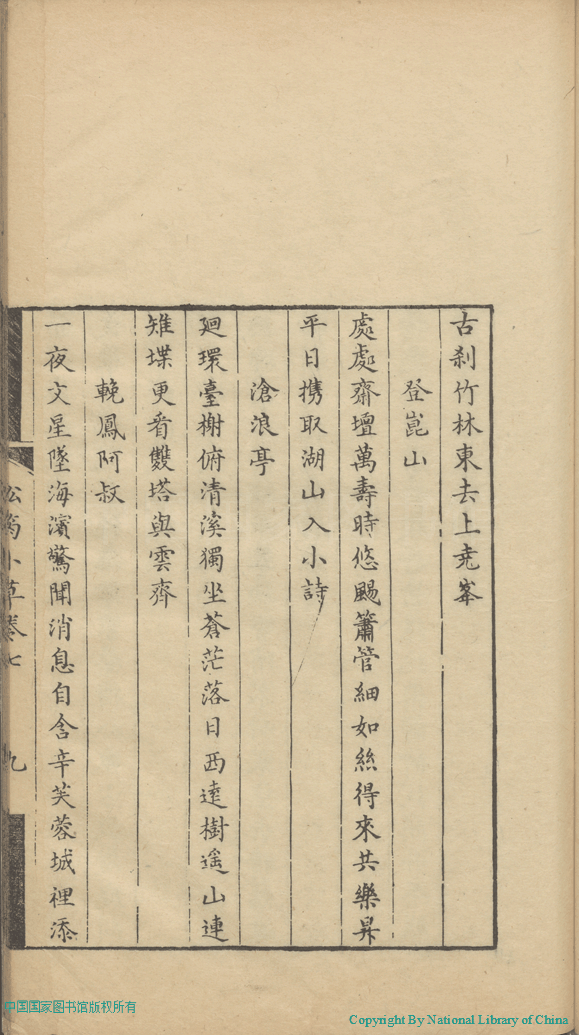 古刹竹林東去上堯峯
登崑山
處處齋壇萬壽時悠颺簫管細如絲得來共樂昇
平日攜取湖山入小詩
滄浪亭
廻環臺榭俯清溪獨坐蒼茫落日西遠樹遙山連
雉堞更看雙塔與雲齊
輓鳳阿叔
一夜文星墜海濱驚聞消息自含辛芙蓉城裡添
小草卷七
九
中国国家图书馆版权所有
Copyright By National Library of China